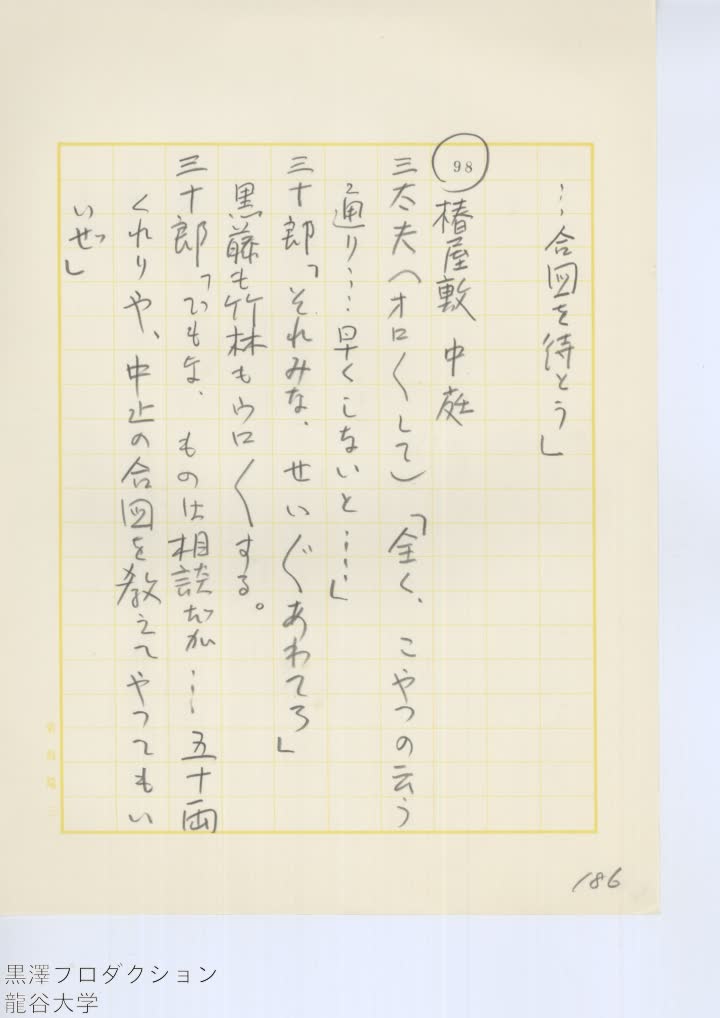 …合図を待とう」
98
椿屋敷 中庭
三太夫（オロ〱して）「全く、こやつの云う
通り…早くしないと……」
三十郎「それみな、せいぐあわてろ」
黒藤も竹林もウロ〱する。
三十郎「でもな、ものは相談だが…五十両
くれりや、中止の合図を教えてやつてもい
いぜ」
186
黒澤プロダクション
龍谷大学